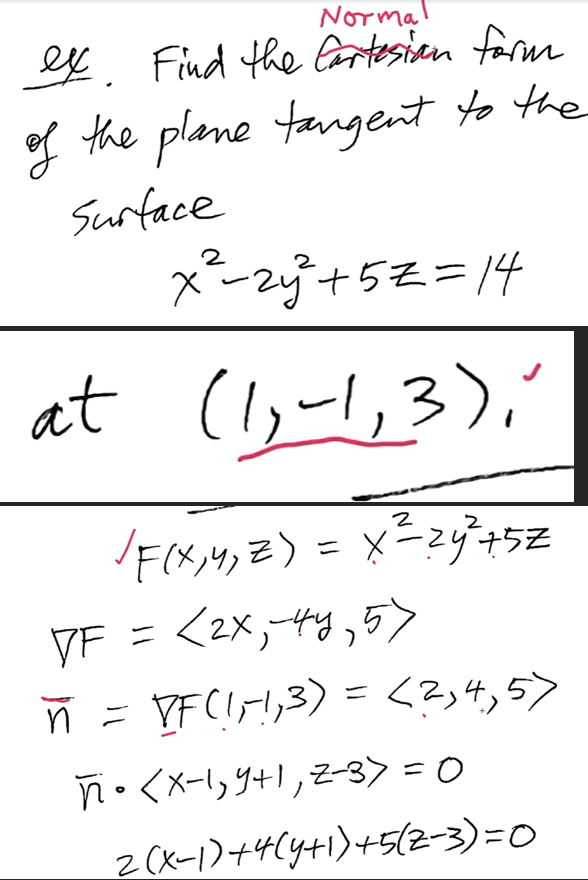 Normal
ex. Find the Cartesian form
of the plane tangent to the
surface
x²-2y²+5z=14
at (1,-1,3).
F(x,y,z) = x²-2y²+5z
∇F = <2x,-4y,5>
n̄ = ∇F(1,-1,3) = <2,4,5>
n̄ • <x-1,y+1,z-3> = 0
2(x-1)+4(y+1)+5(z-3)=0